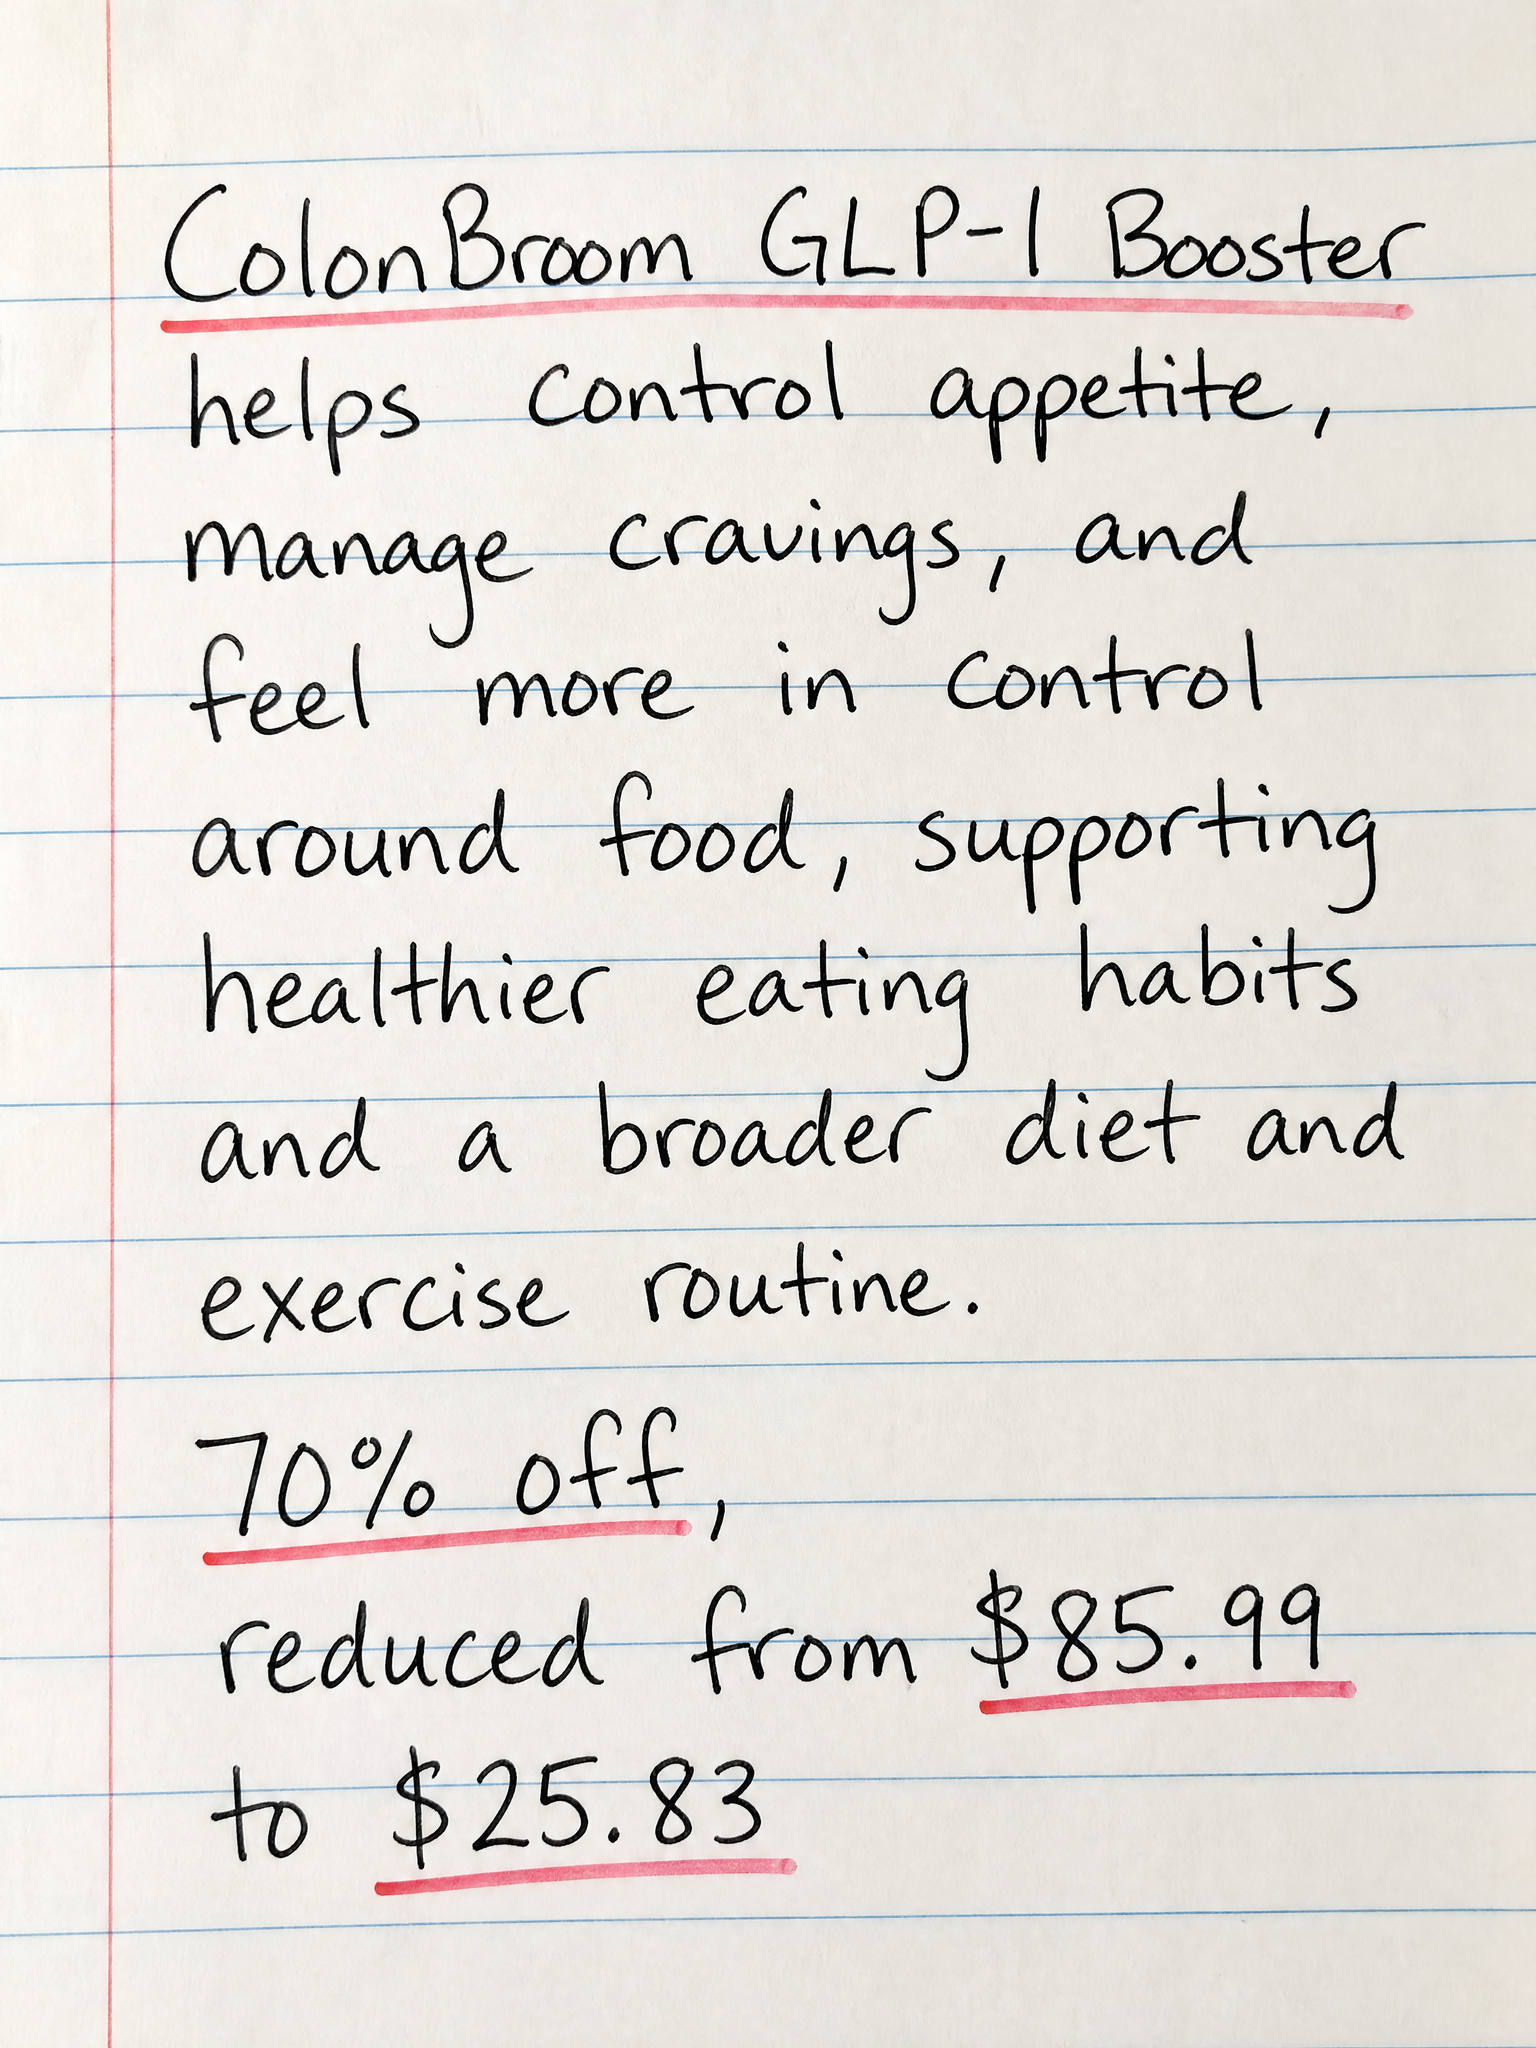 ColonBroom GLP-1 Booster
helps control appetite,
manage cravings, and
feel more in control
around food, supporting
healthier eating habits
and a broader diet and
exercise routine.
70% off,
reduced from $85.99
to $25.83